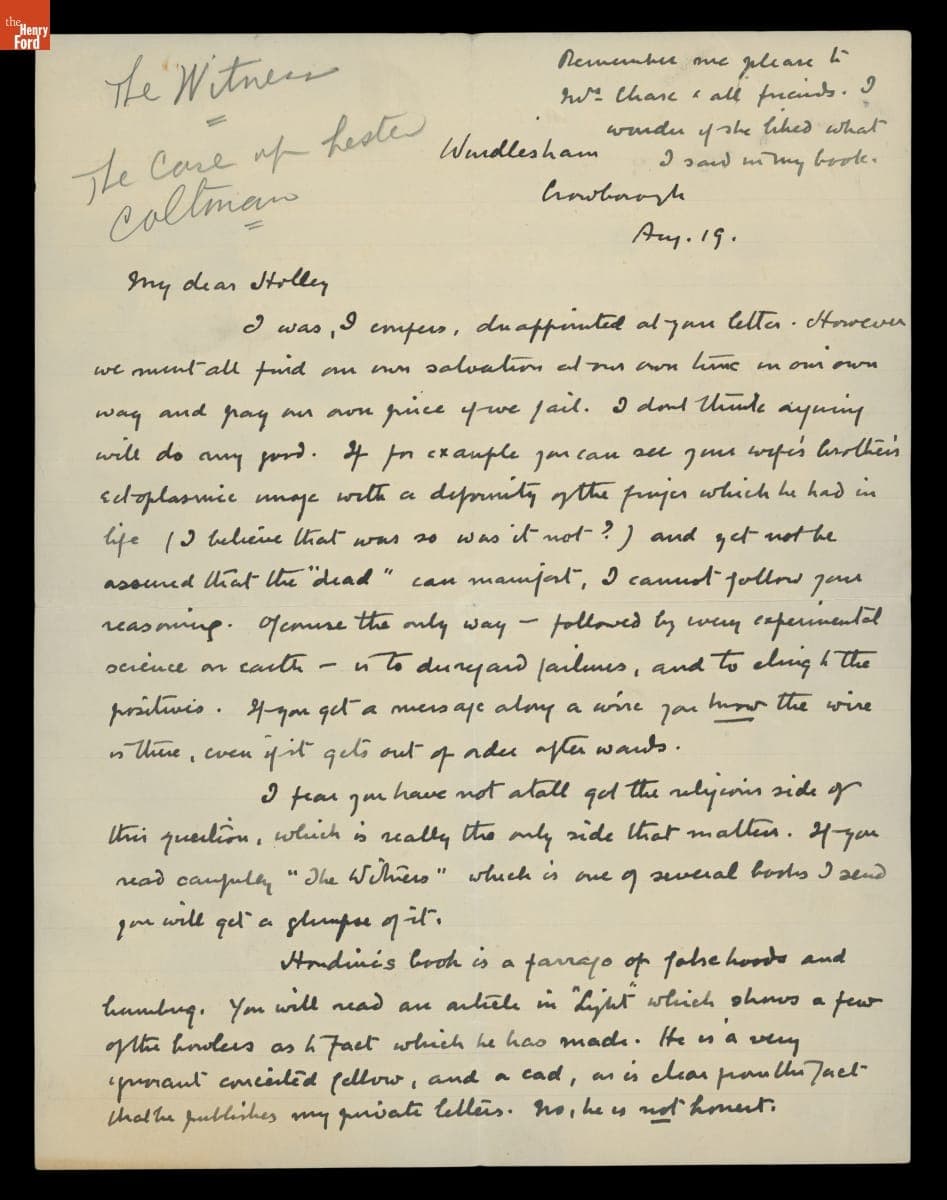 the
Henry
Ford
The Witness
The Case of Lester
Coltman
Remember me please to
Mrs Chase & all friends. I
wonder if she liked what
I said in my book.
Windlesham
Crowborough
Aug. 19.
My dear Holley
I was, I confess, disappointed at your letter. However
we must all find our own salvation at our own time in our own
way and pay our own price if we fail. I dont think arguing
will do any good. If for example you can see your wife's brother's
ectoplasmic image with a deformity of the finger which he had in
life (I believe that was so was it not?) and yet not be
assured that the "dead" can manifest, I cannot follow your
reasoning. Of course the only way – followed by every experimental
science on earth – is to disregard failures, and to cling to the
positives. If you get a message along a wire you know the wire
is there, even if it gets out of order afterwards.
I fear you have not at all got the religious side of
this question, which is really the only side that matters. If you
read carefully "The Witness" which is one of several books I send
you will get a glimpse of it.
Houdini's book is a farrago of falsehoods and
humbug. You will read an article in "Light" which shows a few
of the howlers as to fact which he has made. He is a very
ignorant conceited fellow, and a cad, as is clear from the fact
that he publishes my private letters. No, he is not honest.